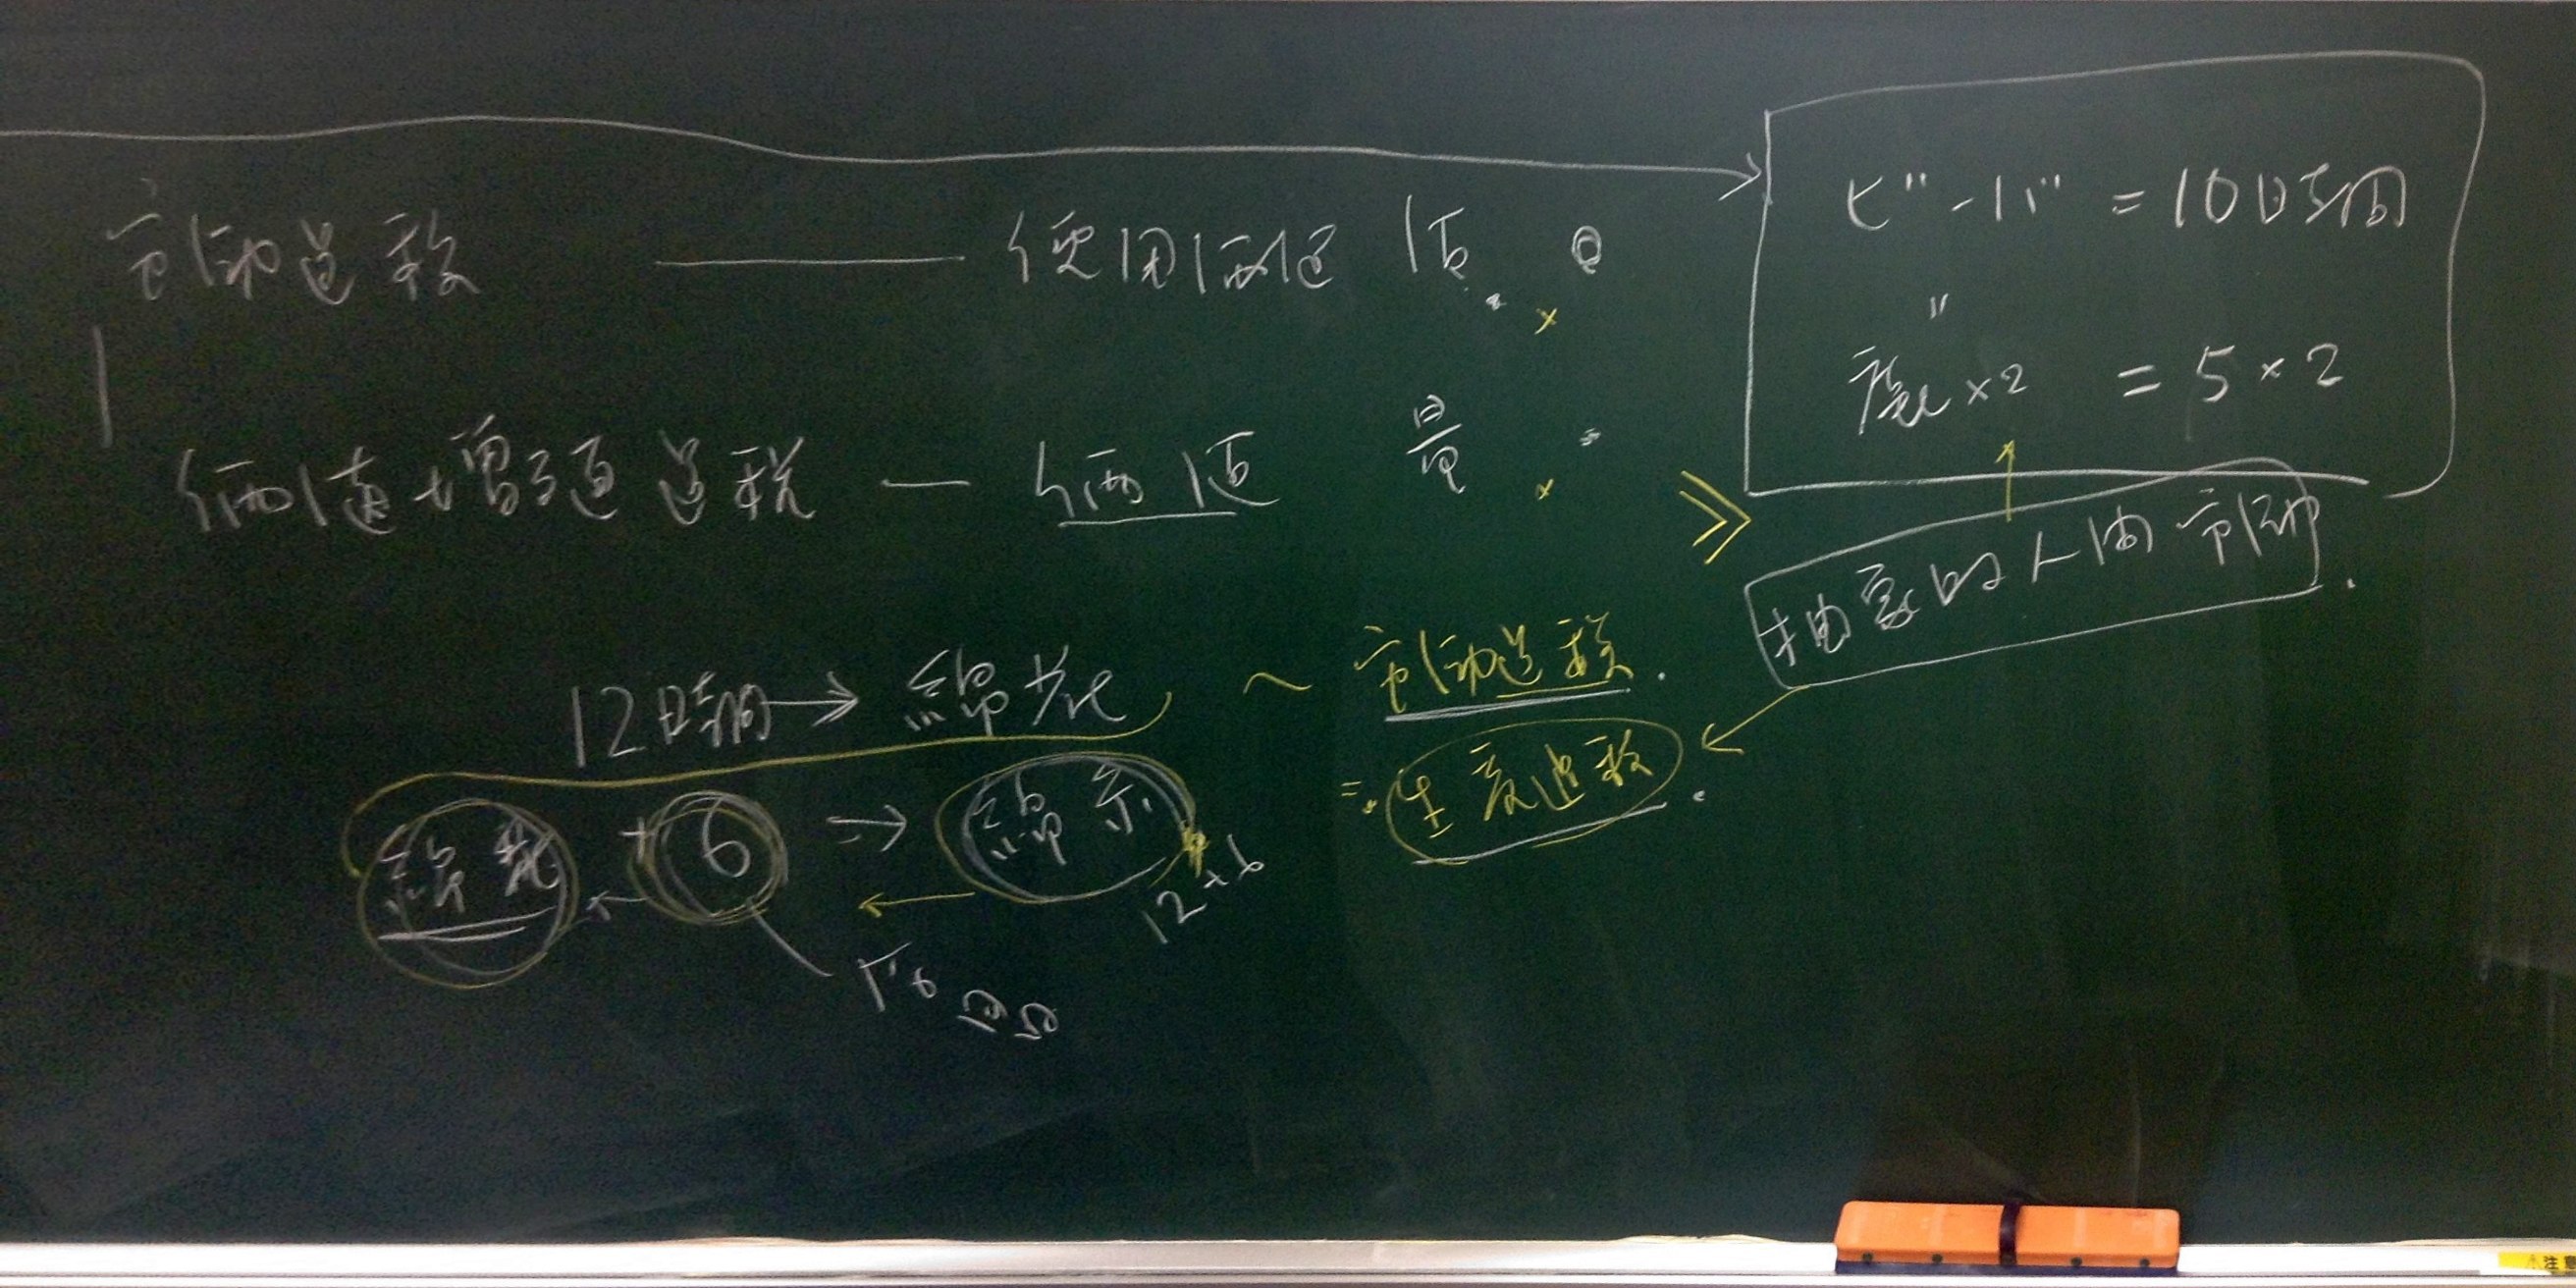 労働過程 — 使用価値 質
価値増殖過程 — 価値 量
ビーバー = 10時間
〃
鹿×2 = 5×2
抽象的人間労働
12時間 → 綿花 〜 労働過程
綿花 + 6 → 綿糸
12+6
= 生産過程